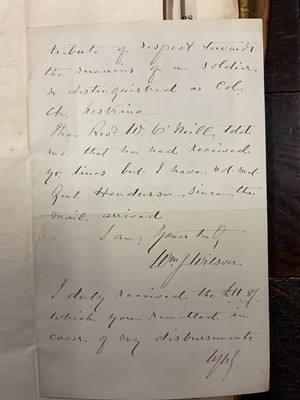 tribute of respect towards
the remains of a soldier
so distinguished as Col
Ch. Erskine
The Revd Mr O'Neill told
me that he had received
yr lines but I have not met
Genl Henderson since the
mail arrived
I am, Yours truly
Wm J Wilson
I duly received the £11.
which you remitted in
cover of my disbursements